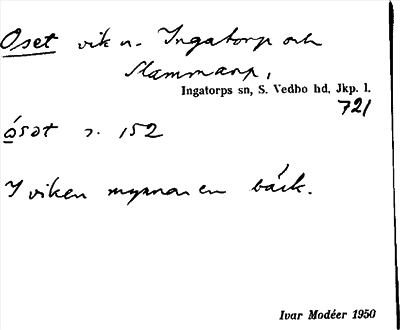 Oset vik n. Ingatorp och
Slammarp,
Ingatorps sn, S. Vedbo hd, Jkp. l.
721
s. 152
I viken mynnar en bäck.
Ivar Modéer 1950